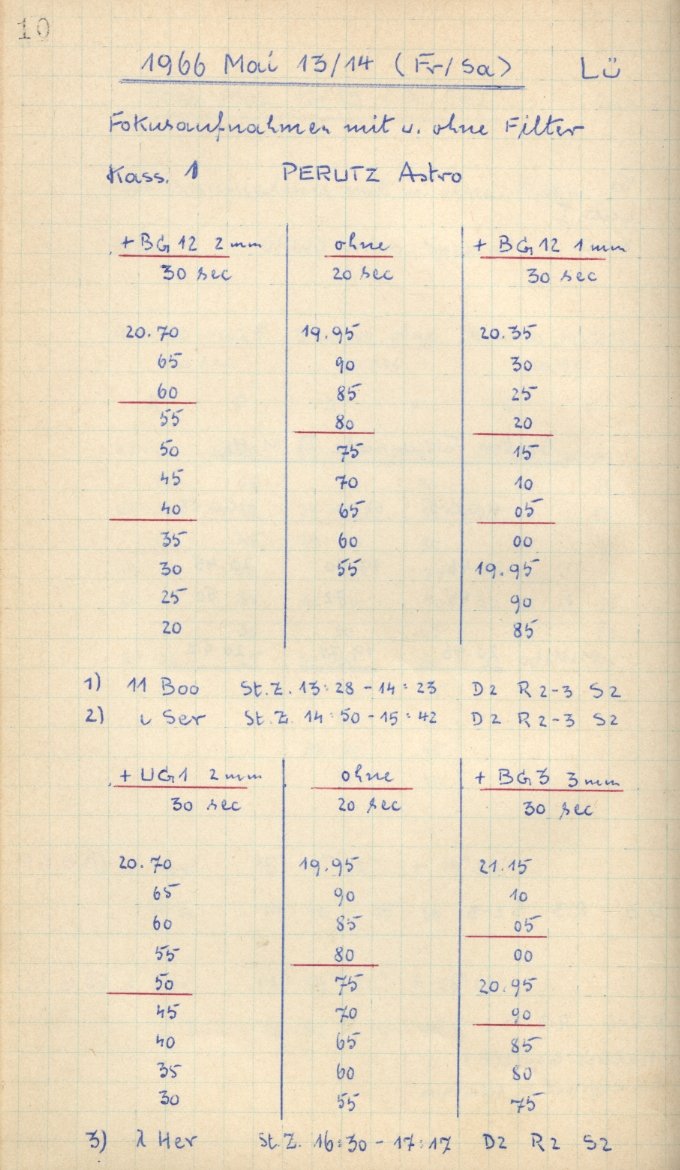 10
1966 Mai 13/14 (Fr/Sa) Lü
Fokusaufnahmen mit u. ohne Filter
Kass. 1 PERUTZ Astro
+ BG 12 2 mm ohne + BG 12 1 mm
30 sec 20 sec 30 sec
20.70 19.95 20.35
65 90 30
60 85 25
55 80 20
50 75 15
45 70 10
40 65 05
35 60 00
30 55 19.95
25 90
20 85
1) 11 Boo St.Z. 13:28 - 14:23 D2 R 2-3 S2
2) ι Ser St.Z. 14:50 - 15:42 D2 R 2-3 S2
+ UG1 2 mm ohne + BG3 3 mm
30 sec 20 sec 30 sec
20.70 19.95 21.15
65 90 10
60 85 05
55 80 00
50 75 20.95
45 70 90
40 65 85
35 60 80
30 55 75
3) λ Her St.Z. 16:30 - 17:17 D2 R2 S2